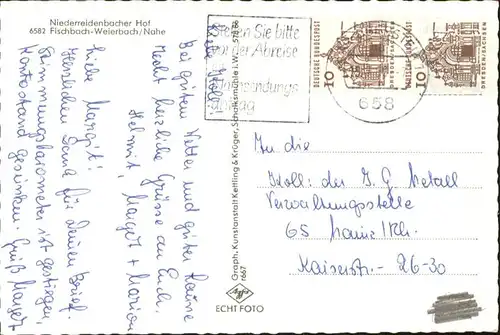 Niederreidenbacher Hof
6582 Fischbach-Weierbach/Nahe
Bei gutem Wetter und guter Laune
recht herzliche Grüsse an Euch.
Helmut, Margret + Marion
Liebe Margit!
Herzlichen Dank für Deinen Brief.
Stimmungsbarometer ist gestiegen,
Kontostand gesunken. Gruß Margret
Graph. Kunstanstalt Kettling & Krüger, Schalksmühle i. W.
1667
Agfa
ECHT FOTO
Sie bitte
vor der Abreise
658
DEUTSCHE BUNDESPOST
10
DRESDEN/SACHSEN
DEUTSCHE BUNDESPOST
10
DRESDEN/SACHSEN
An die
Koll: der I. G. Metall
Verwaltungsstelle
65 Mainz/Rh.
Kaiserstr. - 26-30